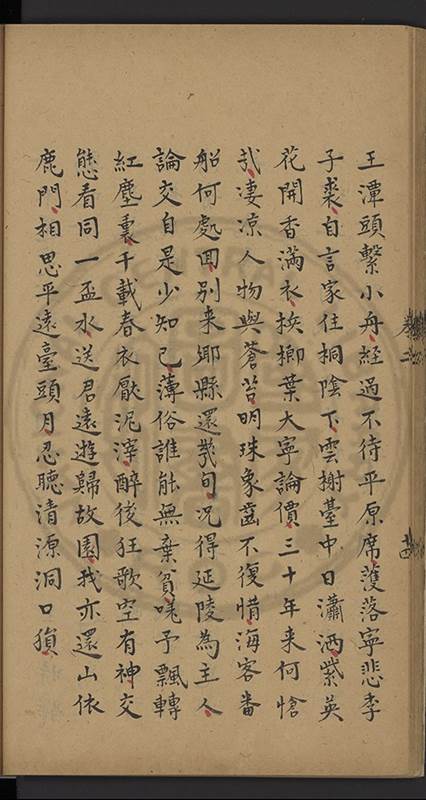 王潭頭繫小舟經過不待平原席蒦落寧悲季
子裘自言家住桐陰下雲榭臺中日瀟洒紫英
花開香滿衣挨櫛葉大寧論價三十年来何愴
我凄凉人物與蒼苔明珠象齒不復惜海客番
船何處回別来鄉縣還幾旬况得延陵為主人
論交自是少知己薄俗誰能無棄貧嗟予飄轉
紅塵裏千載春衣厭泥滓醉後狂歌空有神交
態看同一盃水送君遠遊歸故園我亦還山依
鹿門相思平遠臺頭月忍聽清源洞口猿